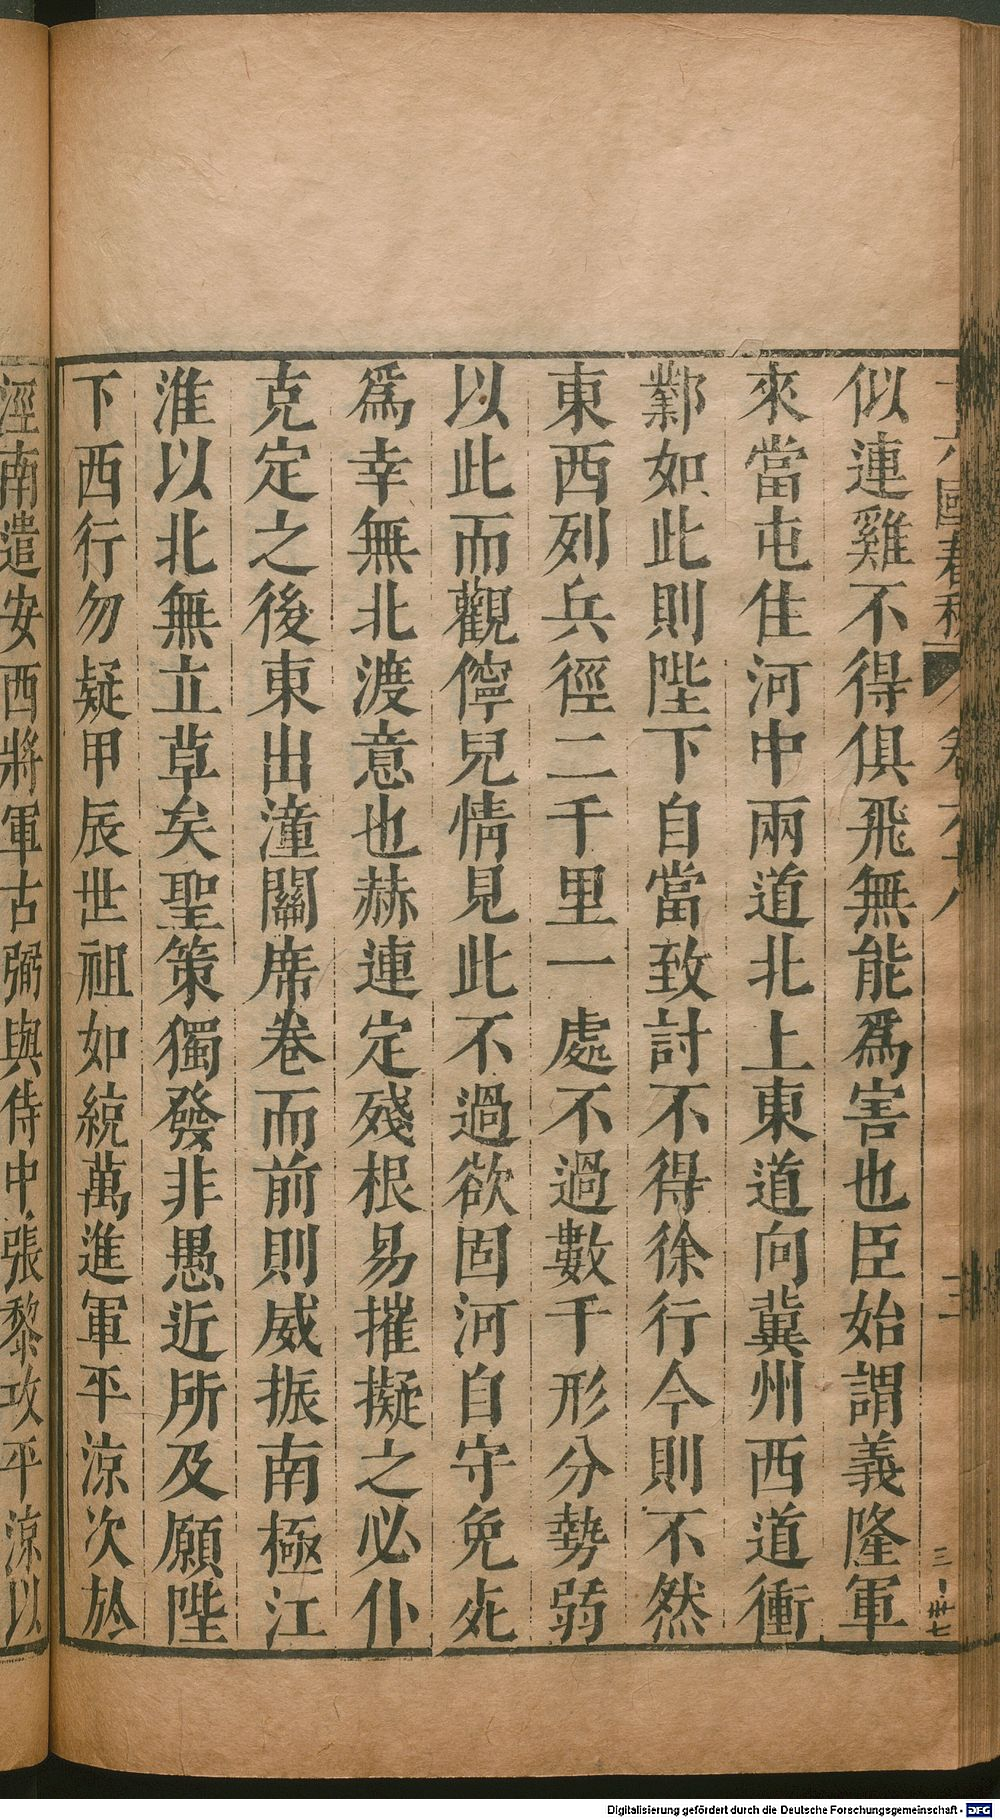 似連雞不得俱飛無能爲害也臣始謂義隆軍
來當屯住河中兩道北上東道向冀州西道衝
鄴如此則陛下自當致討不得徐行今則不然
東西列兵徑二千里一處不過數千形分勢弱
以此而觀儜兒情見此不過欲固河自守免死
爲幸無北渡意也赫連定殘根易摧擬之必仆
克定之後東出潼關席卷而前則威振南極江
淮以北無立草矣聖策獨發非愚近所及願陛
下西行勿疑甲辰世祖如統萬進軍平涼次於
涇南遣安西將軍古弼與侍中張黎攻平涼以
Digitalisierung gefördert durch die Deutsche Forschungsgemeinschaft - DFG